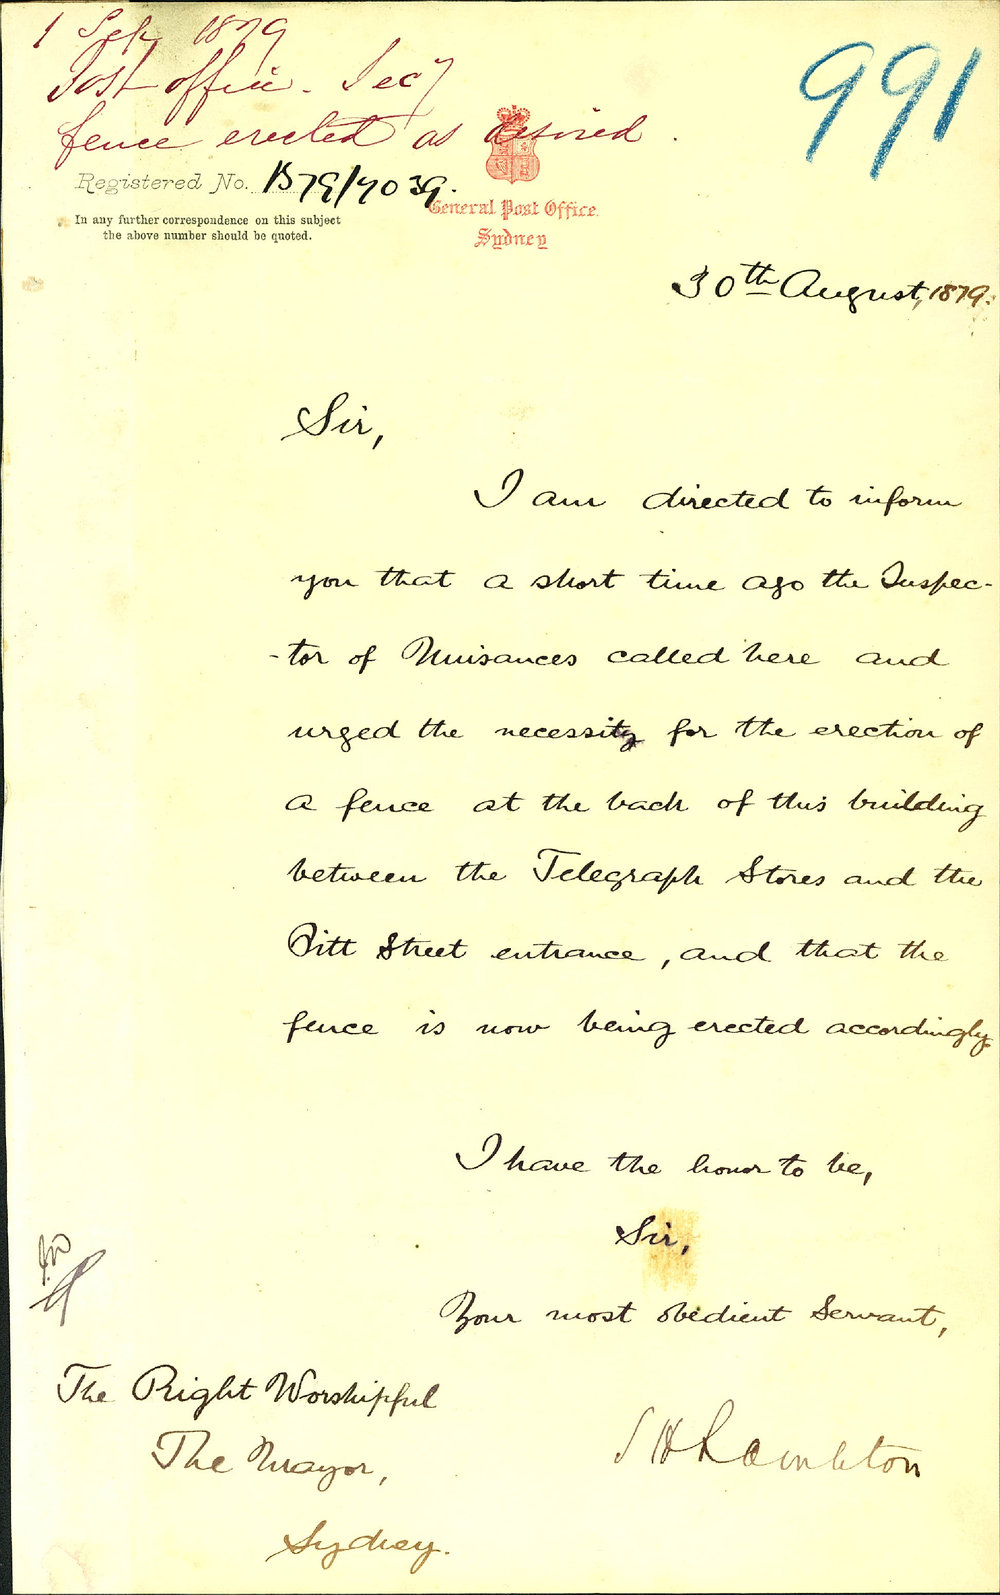 1 Sep 1879
Post office. Secy
fence erected as desired.
991
Registered No. 1879/7039.
In any further correspondence on this subject
the above number should be quoted.
General Post Office.
Sydney
30th August, 1879.
Sir,
I am directed to inform
you that a short time ago the Inspec-
-tor of Nuisances called here and
urged the necessity for the erection of
a fence at the back of this building
between the Telegraph Stores and the
Pitt Street entrance, and that the
fence is now being erected accordingly.
I have the honor to be,
Sir,
Your most obedient Servant,
S H Lambton
The Right Worshipful
The Mayor,
Sydney.